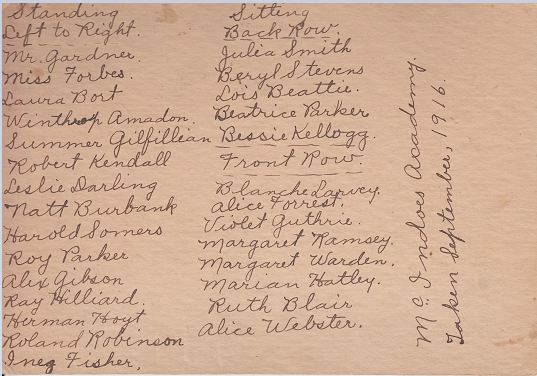 Standing
Left to Right.
Mr. Gardner.
Miss Forbes.
Laura Bort
Winthrop Amadon.
Summer Gilfillian
Robert Kendall
Leslie Darling
Natt Burbank
Harold Somers
Roy Parker
Alex Gibson
Ray Hilliard.
Herman Hoyt
Roland Robinson
Inez Fisher.
Sitting
Back Row.
Julia Smith
Beryl Stevens
Lois Beattie.
Beatrice Parker
Bessie Kellogg.
Front Row.
Blanche Larvey.
Alice Forrest.
Violet Guthrie.
Margaret Ramsey.
Margaret Warden.
Marian Hatley.
Ruth Blair
Alice Webster.
Mc Indoes Academy.
Taken September, 1916.